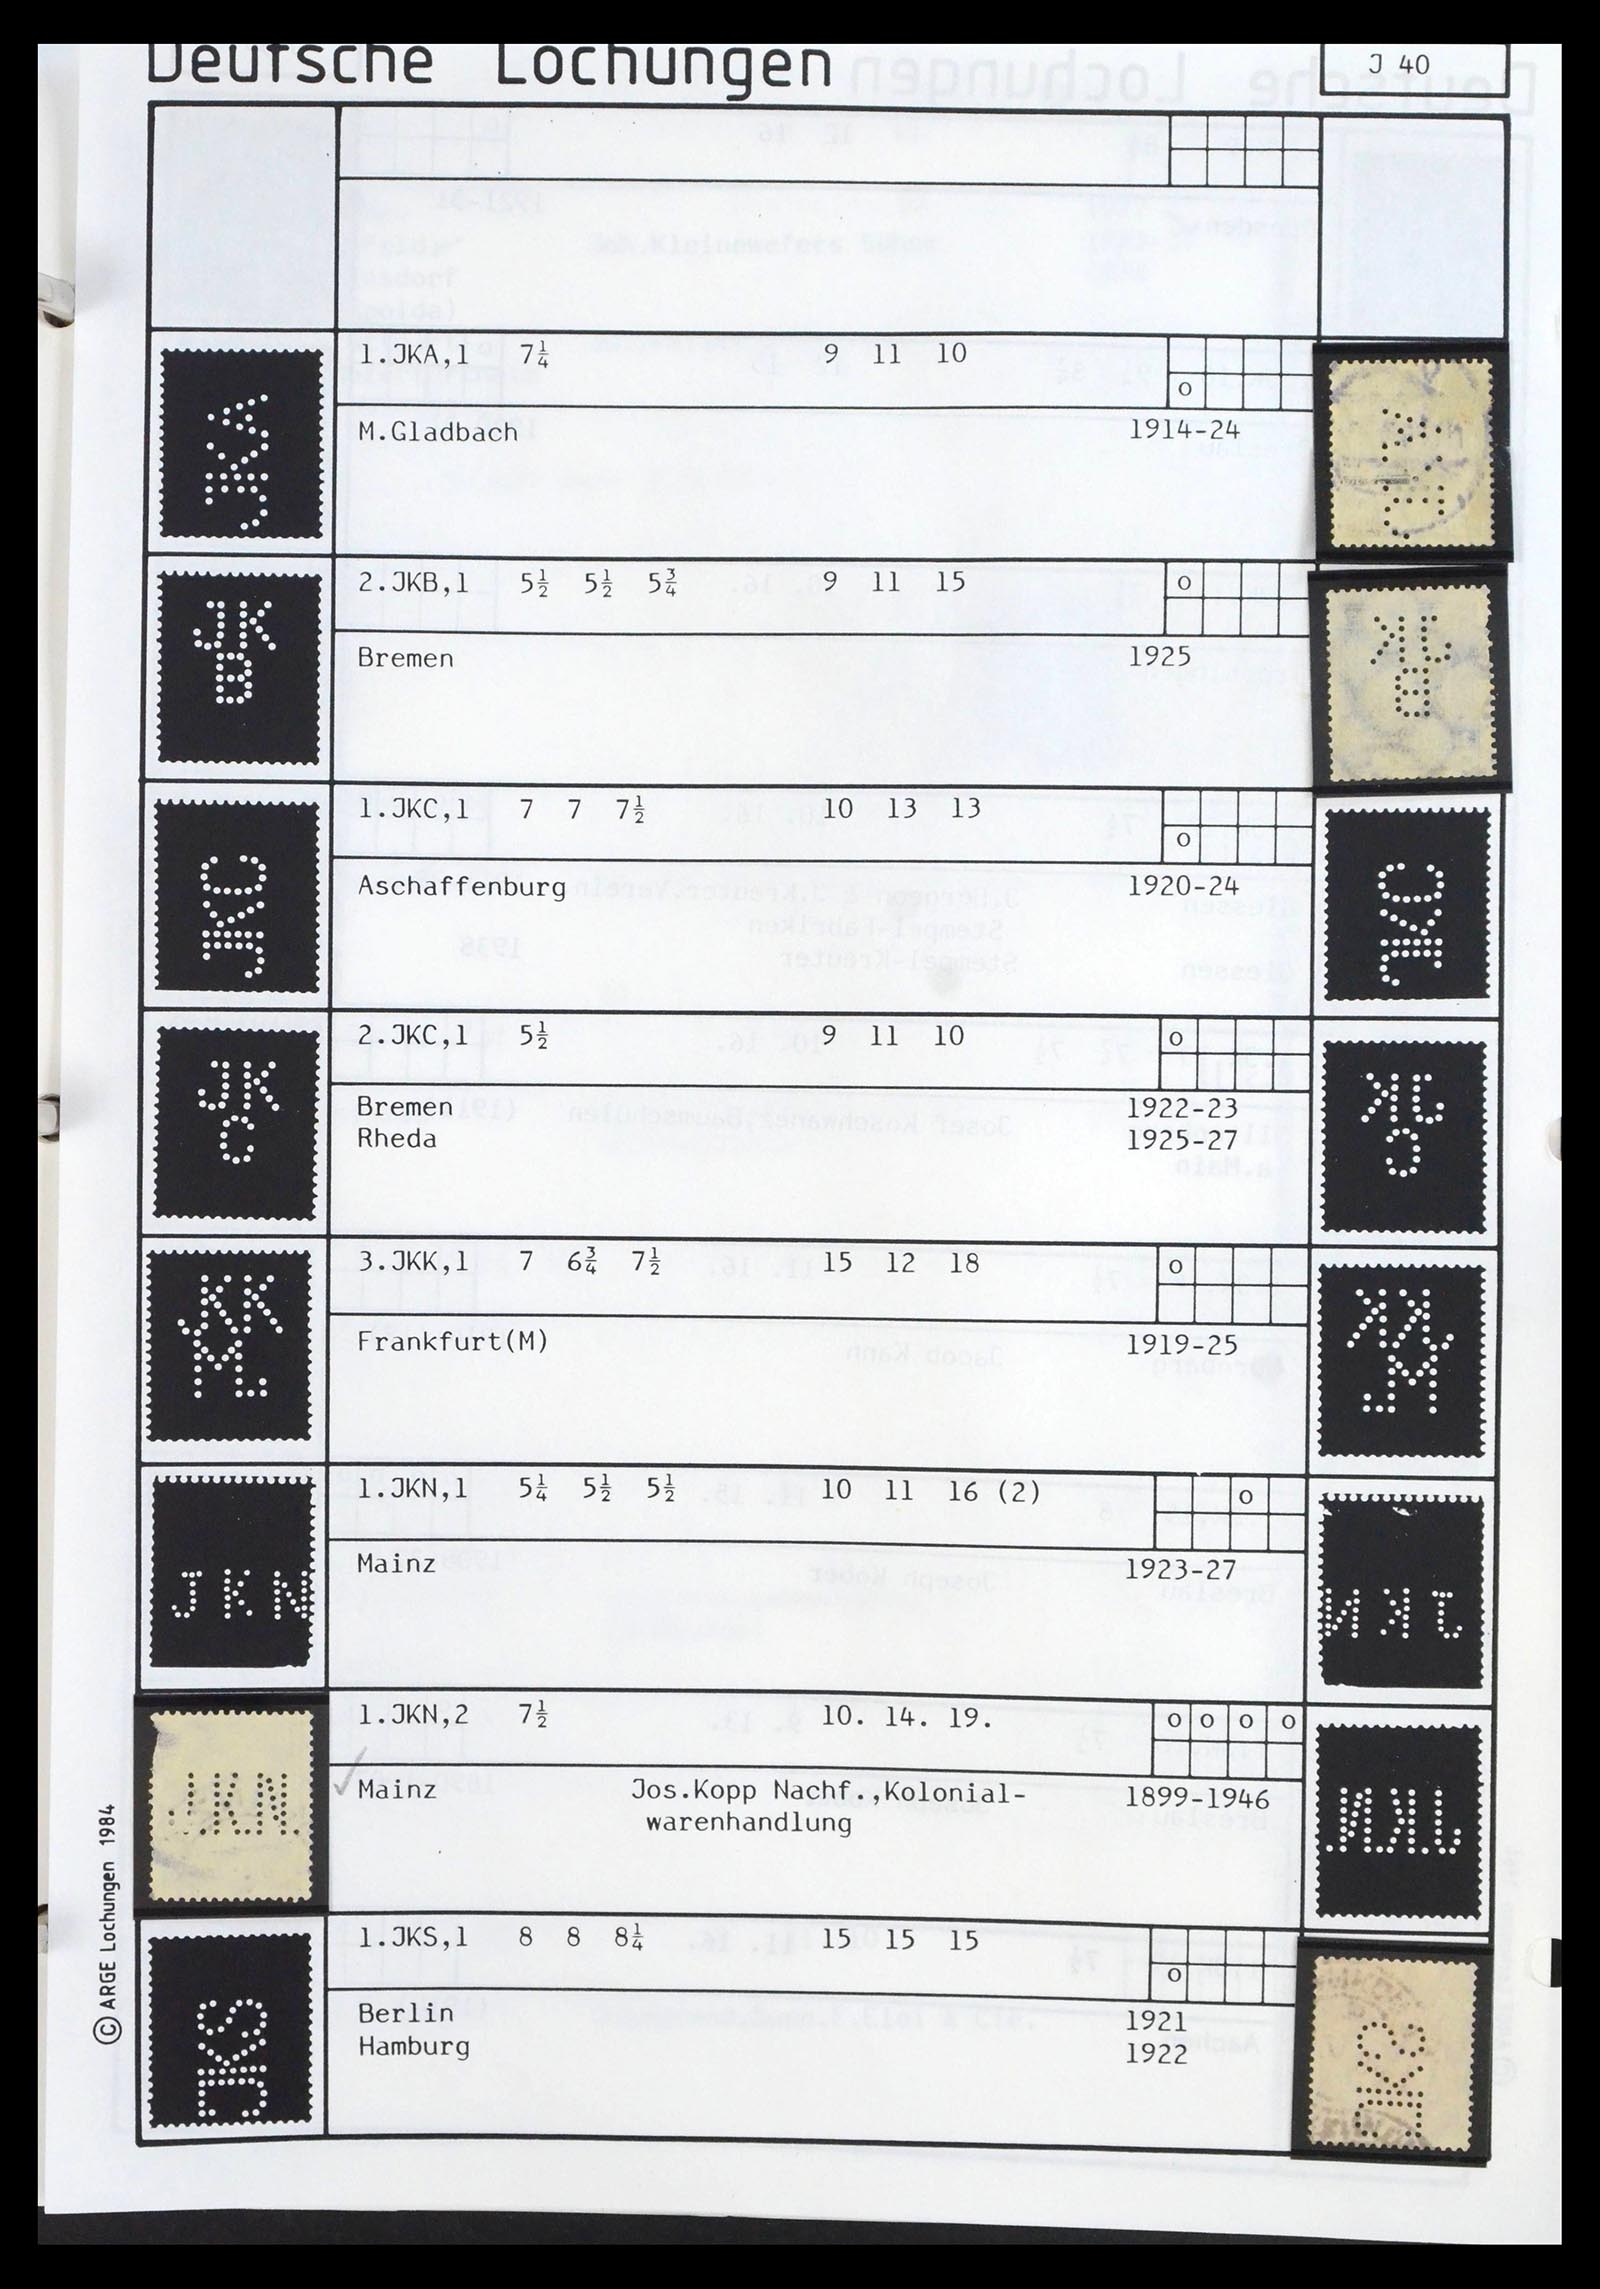 Deutsche Lochungen
J 40
1.JKA,1 7¼ 9 11 10
o
M.Gladbach 1914-24
JKA
2.JKB,1 5½ 5½ 5¾ 9 11 15 o
Bremen 1925
JK
B
1.JKC,1 7 7 7½ 10 13 13
o
Aschaffenburg 1920-24
JKC
2.JKC,1 5½ 9 11 10 o
Bremen 1922-23
Rheda 1925-27
JK
C
3.JKK,1 7 6¾ 7½ 15 12 18 o
Frankfurt(M) 1919-25
JKK
M
1.JKN,1 5¼ 5½ 5½ 10 11 16 (2) o
Mainz 1923-27
JKN
1.JKN,2 7½ 10. 14. 19. o o o o
Mainz Jos.Kopp Nachf.,Kolonial- 1899-1946
warenhandlung
JKN
1.JKS,1 8 8 8¼ 15 15 15
o
Berlin 1921
Hamburg 1922
JKS
© ARGE Lochungen 1984